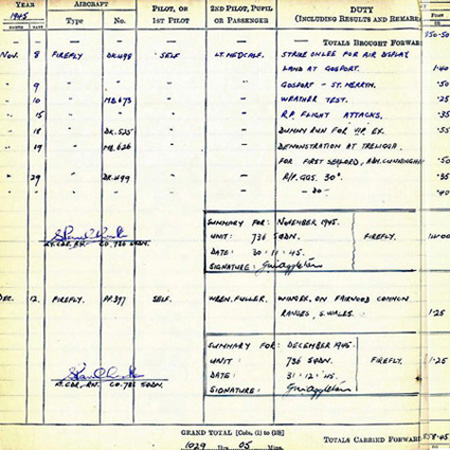 YEAR AIRCRAFT PILOT, OR 2ND PILOT, PUPIL DUTY
1945 Type No. 1ST PILOT OR PASSENGER (INCLUDING RESULTS AND REMARK
MONTH DATE
— — — — — — TOTALS BROUGHT FORWARD 950·50
Nov. 8 FIREFLY DK498 SELF LT. MEDCALF. STRIKE ON LEE FOR AIR DISPLAY
LAND AT GOSPORT. 1·40
" 9 GOSPORT – ST. MERRYN. ·50
" 10 MB.673 WEATHER TEST. ·25
" 15 R.P. FLIGHT ATTACKS. ·35
" 18 DK.525 DUMMY RUN FOR EX. ·55
" 19 MB.626 DEMONSTRATION AT TRELIGGA
FOR FIRST SEALORD, ADM. CUNNINGHAM ·50
" 29 DK.499 R/P. GGS. 30°. ·35
— DO — ·40
SUMMARY FOR: NOVEMBER 1945.
UNIT: 736 SQDN. FIREFLY.
LT. CDR, RN. CO. 736 SQDN. DATE: 30·11·45
SIGNATURE:
DEC. 12. FIREFLY. PP.397 SELF. WREN. FULLER. ON FAIRWOOD COMMON
RANGES, S. WALES. 1·25
SUMMARY FOR: DECEMBER 1945.
UNIT: 736 SQDN. FIREFLY. 1·25
LT. CDR, RN. CO. 736 SQDN. DATE: 31·12·45
SIGNATURE:
GRAND TOTAL [Cols. (1) to (10)]
1029 Hrs 05 Mins. TOTALS CARRIED FORWARD